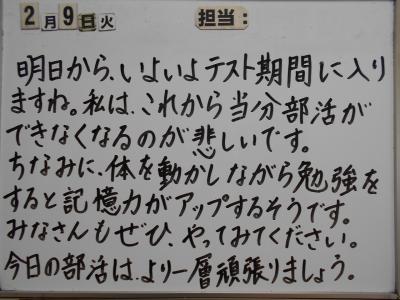 2月9日火 担当:
明日から、いよいよテスト期間に入り
ますね。私は、これから当分部活が
できなくなるのが悲しいです。
ちなみに、体を動かしながら勉強を
すると記憶力がアップするそうです。
みなさんもぜひ、やってみてください。
今日の部活は、より一層頑張りましょう。